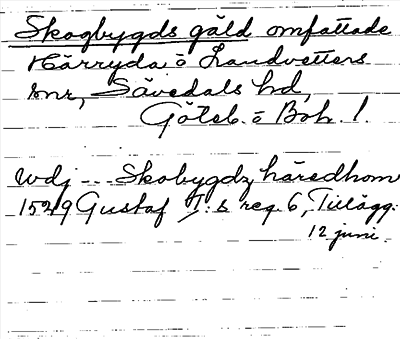 Skogbygds gäld omfattade
Härryda o Landvetters
snr, Sävedals hd,
Göteb. o Boh. l.
wdj --- Skobygdz häredhom
1529 Gustaf I:s reg. 6, Tillägg.
12 juni.